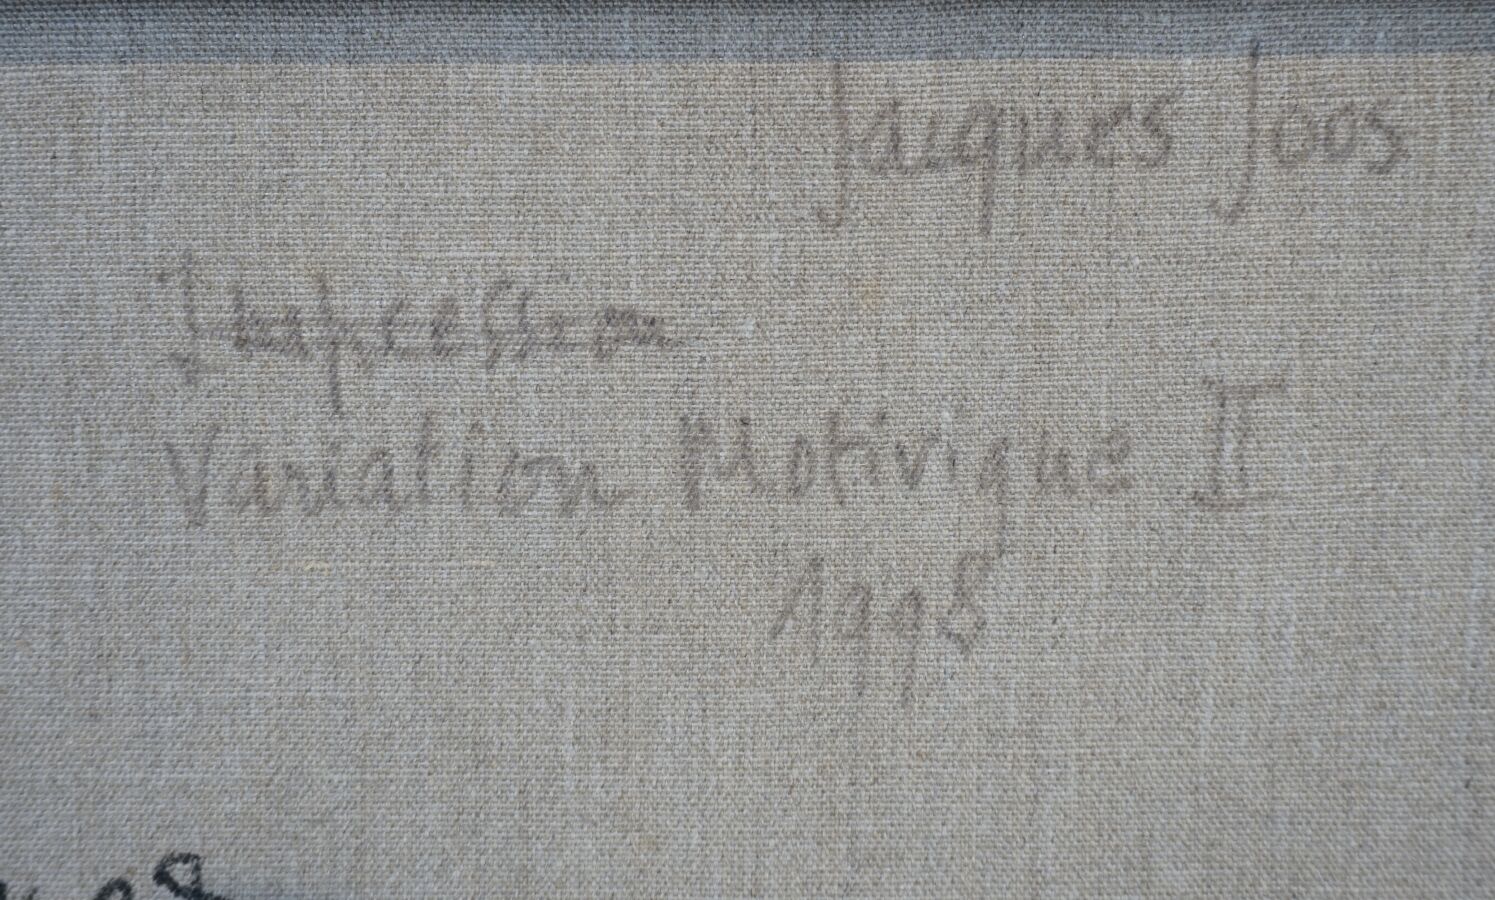 Jacques Joos
Impression
Variation Motivique II
1998